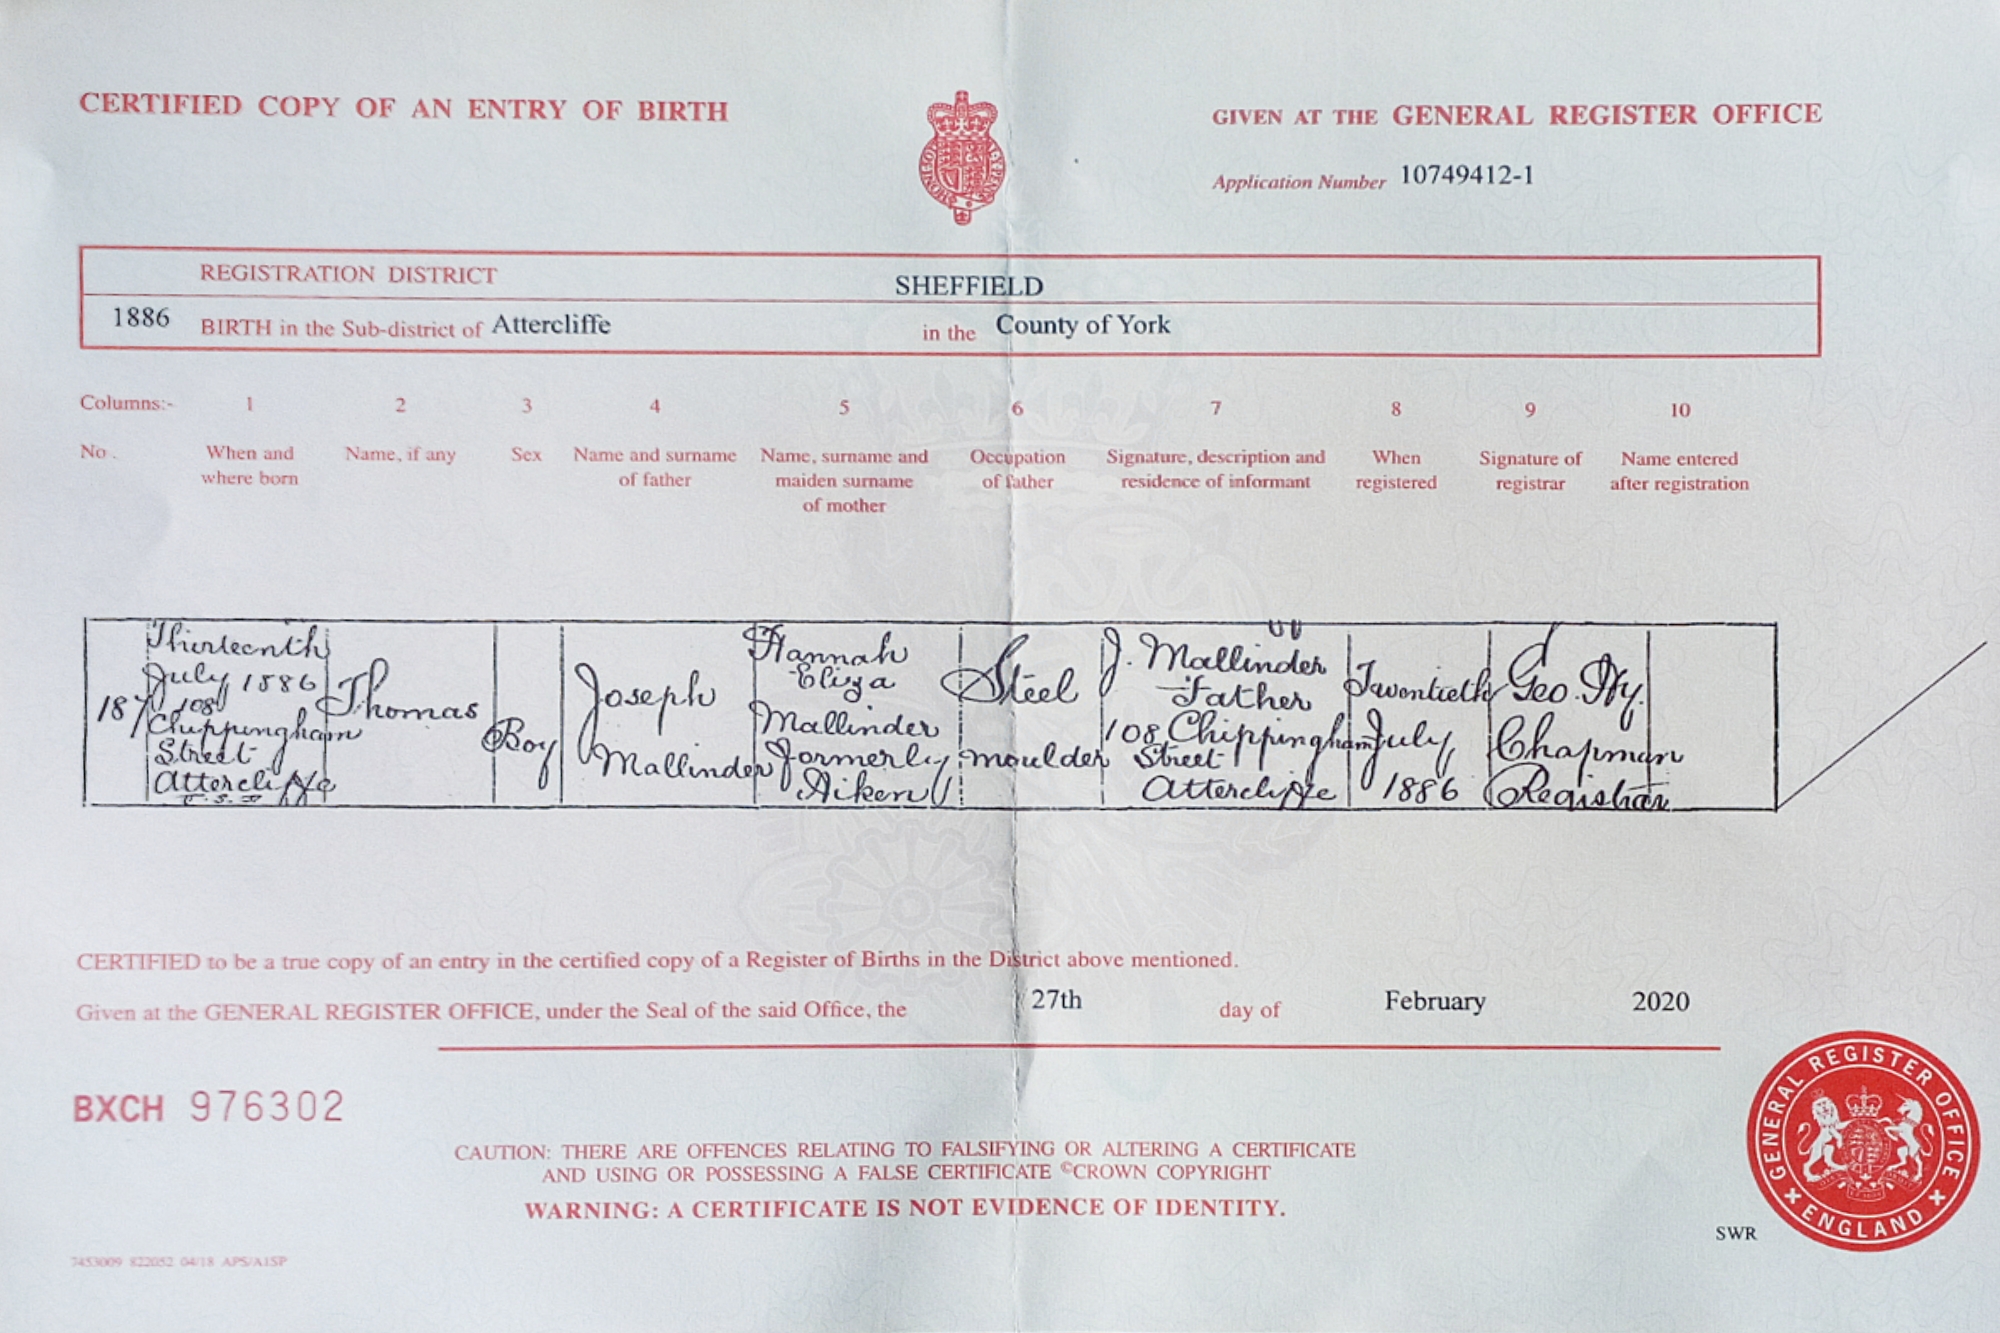 CERTIFIED COPY OF AN ENTRY OF BIRTH
GIVEN AT THE GENERAL REGISTER OFFICE
Application Number 10749412-1
REGISTRATION DISTRICT SHEFFIELD
1886 BIRTH in the Sub-district of Attercliffe in the County of York
Columns:- 1 2 3 4 5 6 7 8 9 10
No. When and where born
Name, if any
Sex
Name and surname of father
Name, surname and maiden surname of mother
Occupation of father
Signature, description and residence of informant
When registered
Signature of registrar
Name entered after registration
187
Thirteenth
July 1886
108
Chippingham
Street
Attercliffe
Thomas
Boy
Joseph
Mallinder
Hannah
Eliza
Mallinder
formerly
Aiken
Steel
moulder
J. Mallinder
Father
108 Chippingham
Street
Attercliffe
Twentieth
July
1886
Geo. Hy.
Chapman
Registrar
CERTIFIED to be a true copy of an entry in the certified copy of a Register of Births in the District above mentioned.
Given at the GENERAL REGISTER OFFICE, under the Seal of the said Office, the 27th day of February 2020
BXCH 976302
CAUTION: THERE ARE OFFENCES RELATING TO FALSIFYING OR ALTERING A CERTIFICATE
AND USING OR POSSESSING A FALSE CERTIFICATE ©CROWN COPYRIGHT
WARNING: A CERTIFICATE IS NOT EVIDENCE OF IDENTITY.
GENERAL REGISTER OFFICE
ENGLAND
SWR
7453009 822052 04/18 APS/A1SP